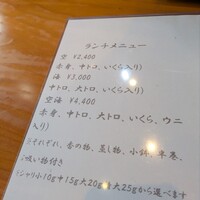 ランチメニュー
空 ¥2,400
赤身、中トロ、いくら入り)
海 ¥3,000
中トロ、大トロ、いくら入り)
空海 ¥4,400
赤身、中トロ、大トロ、いくら、ウニ
入り)
※それぞれ、香の物、蒸し物、小鉢、手巻、
吸い物付き
シャリ小10g中15g大20g 大25gから選べます